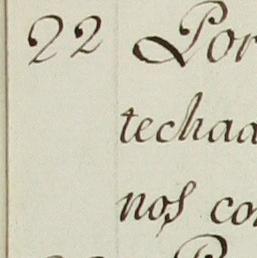 22 Por
techaa
nos co